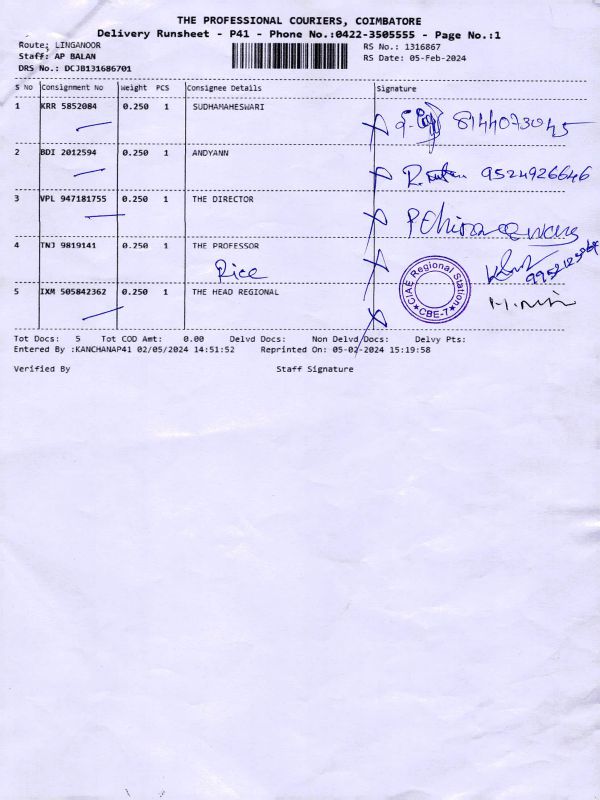 THE PROFESSIONAL COURIERS, COIMBATORE
Delivery Runsheet - P41 - Phone No.:0422-3505555 - Page No.:1
Route: LINGANOOR RS No.: 1316867
Staff: AP BALAN RS Date: 05-Feb-2024
DRS No.: DCJB131686701
S No Consignment No Weight PCS Consignee Details Signature
1 KRR 5852084 0.250 1 SUDHAMAHESWARI 8144073045
2 BDI 2012594 0.250 1 ANDYANN 9524926646
3 VPL 947181755 0.250 1 THE DIRECTOR
4 TNJ 9819141 0.250 1 THE PROFESSOR
Rice
CIAE Regional Station
CBE-7
5 IXM 505842362 0.250 1 THE HEAD REGIONAL
Tot Docs: 5 Tot COD Amt: 0.00 Delvd Docs: Non Delvd Docs: Delvy Pts:
Entered By :KANCHANAP41 02/05/2024 14:51:52 Reprinted On: 05-02-2024 15:19:58
Verified By Staff Signature